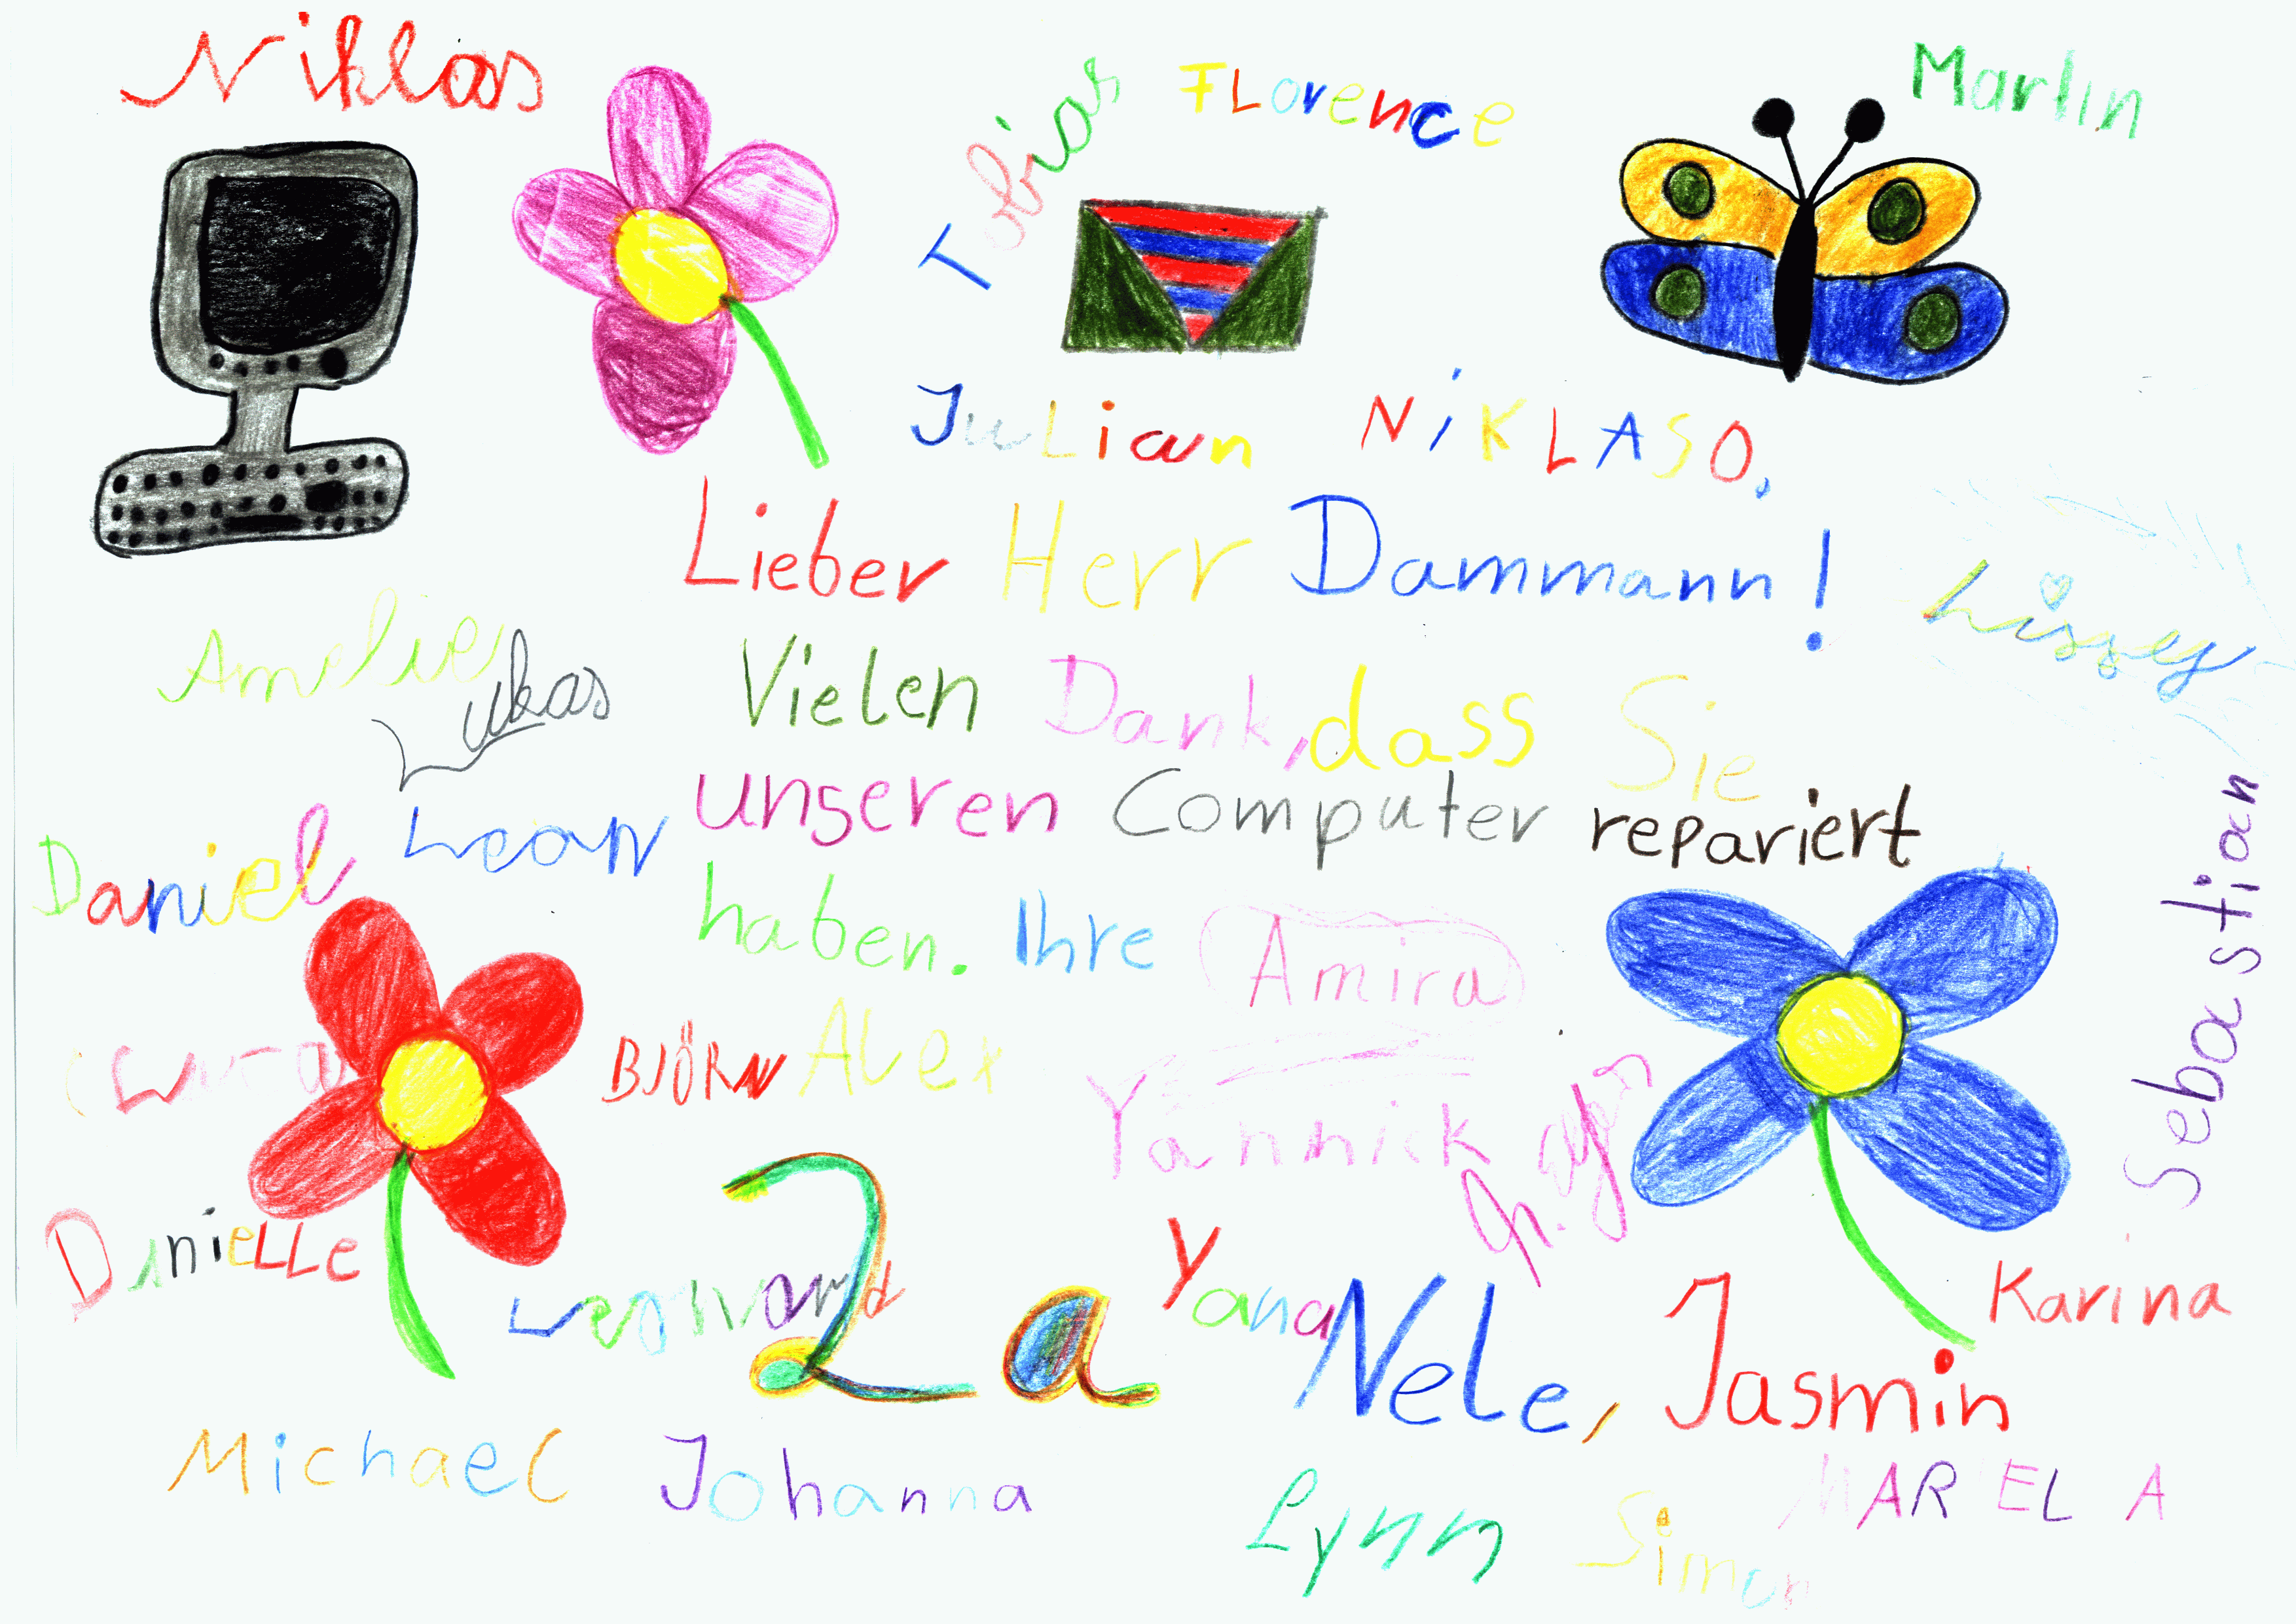 Niklas
Tobias
FLorence
Martin
JuLian
NiKLAS O.
Lieber Herr Dammann!
Lissy
Amelie
Lukas
Vielen Dank, dass Sie
unseren Computer repariert
haben. Ihre
Daniel
Lean
Sebastian
Amira
Lara
BJÖRN
ALex
Yannick
DanieLLe
Leonard
2a
Yana
Nele, Jasmin
Karina
Michael
Johanna
Lynn
Simon
MARIELA